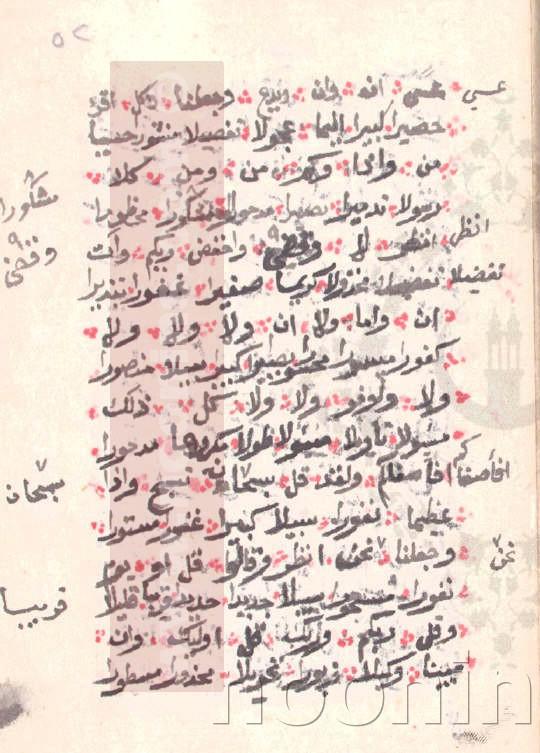 ٥٢
عسى عسى ان وان ويدع وجعلنا وكل اقرا
حصيرا كبيرا اليما عجولا تفصيلا منشورا حسيبا
من واذا وكم من ومن كلا
رسولا تدميرا بصيرا مدحورا مشكورا محظورا
مشكورا
انظر انظر لا وقضى واخفض ربكم وات
وقضى
تفضيلا تفضيلا مخذولا كريما صغيرا غفورا تبذيرا
ان واما ولا ان ولا ولا ولا
كفورا ميسورا محسورا بصيرا كبيرا سبيلا منصورا
ولا واوفو ولا ولا كل ذلك
مسولا تاويلا مسولا طولا مكروها مدحورا
افاصفاكم افاصفاكم ولقد قل سبحانه تسبح واذا
سبحان
عظيما نفورا سبيلا كبيرا غفورا مستورا
نحن وجعلنا نحن انظر وقالوا قل او يوم
نفورا مسحورا سبيلا جديدا حديدا قريبا قليلا
قريبا
وقل ربكم وربك قل اولئك وان
مبينا وكيلا زبورا تحويلا محذورا مسطورا
noorlib